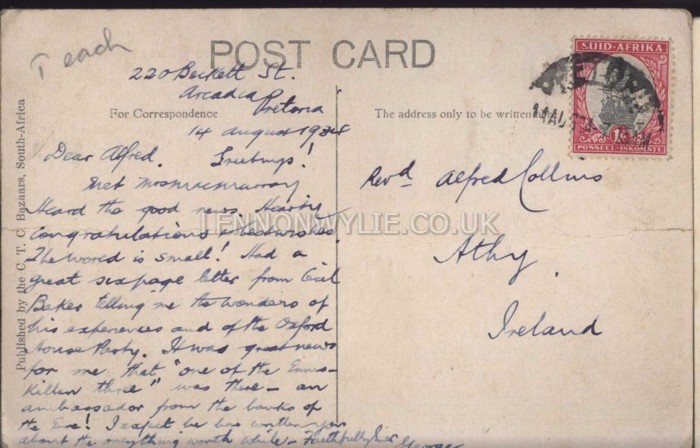 T each
POST CARD
SUID-AFRIKA
POSSEEL-INKOMSTE
PRETORIA
14 AU
220 Beckett St.
Arcadia
Pretoria
For Correspondence
The address only to be written
14 August 1934
Dear Alfred. Greetings!
Met Mrs
Heard the good news. Hearty
congratulations & best wishes.
The world is small! Had a
great six page letter from Cecil
Baker telling me the wonders of
his experiences and of the Oxford
House Party. It was great news
for me that "one of the Ennis-
killen three" was there - an
ambassador from the banks of
the Erne! I expect he has written you
about the everything worth while - Faithfully
George
Revd Alfred Collins
Athy,
Ireland
Published by the C. T. C. Bazaars, South-Africa
LENNONWYLIE.CO.UK